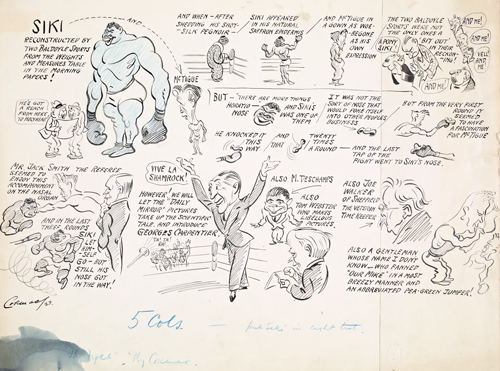 SIKI
RECONSTRUCTED BY
TWO BALDOYLE SPORTS
FROM THE WEIGHTS
AND MEASURES TABLE
IN THE MORNING
PAPERS!
AND-
HE'S GOT
A REACH
FROM HERE
TO
AND WHEN - AFTER
SHEDDING HIS
SILK PEGNOIR -
SIKI APPEARED
IN HIS NATURAL
SAFFRON EPIDERMIS
AND McTIGUE
IN A GOWN AS WOE-
BEGONE
AS HIS
OWN
EXPRESSION
THE TWO BALDOYLE
SPORTS WERE NOT
THE ONLY ONES A
BIT OUT
IN THEIR
RECKON-
ING!
AND ME!
AND ME!
AND ME!
McTIGUE
BUT - THERE ARE MORE THINGS
HORATIO - AND SIKI'S
NOSE WAS ONE OF
THEM
IT WAS NOT THE
SORT OF NOSE THAT
WOULD POKE ITSELF
INTO OTHER PEOPLES
BUSINESS
BUT FROM THE VERY FIRST
ROUND IT
SEEMED
TO HAVE
A FASCINATION
FOR McTIGUE
HE KNOCKED IT
THIS
WAY
AND
THAT
TWENTY
TIMES
A ROUND - AND THE LAST
TAP OF THE
FIGHT WENT TO SIKI'S NOSE.
MR JACK SMITH THE REFEREE
SEEMED TO
ENJOY THIS
ACCOMPANIMENT
ON THE NASAL
ORGAN
AND IN THE LAST
THREE ROUNDS
SIKI
LET
HIM-
SELF
GO - BUT
STILL HIS
NOSE GOT
IN THE WAY!
VIVE LA
SHAMROCK!
HOWEVER, WE WILL
LET THE "DAILY
MIRROR" PICTURES
TAKE UP THE SCIENTIFIC
TALE, AND INTRODUCE
GEORGES CARPENTIER
ALSO M. DESCHAMPS
ALSO
TOM WEBSTER
WHO MAKES
LIBELLOUS
PICTURES
ALSO JOE
WALKER
OF SHEFFIELD
THE VETERAN
TIME KEEPER
ALSO A GENTLEMAN
WHOSE NAME I DON'T
KNOW - WHO FANNED
"OUR MIKE" IN A MOST
BREEZY MANNER AND
AN ABBREVIATED PEA-GREEN JUMPER!
5 Cols.